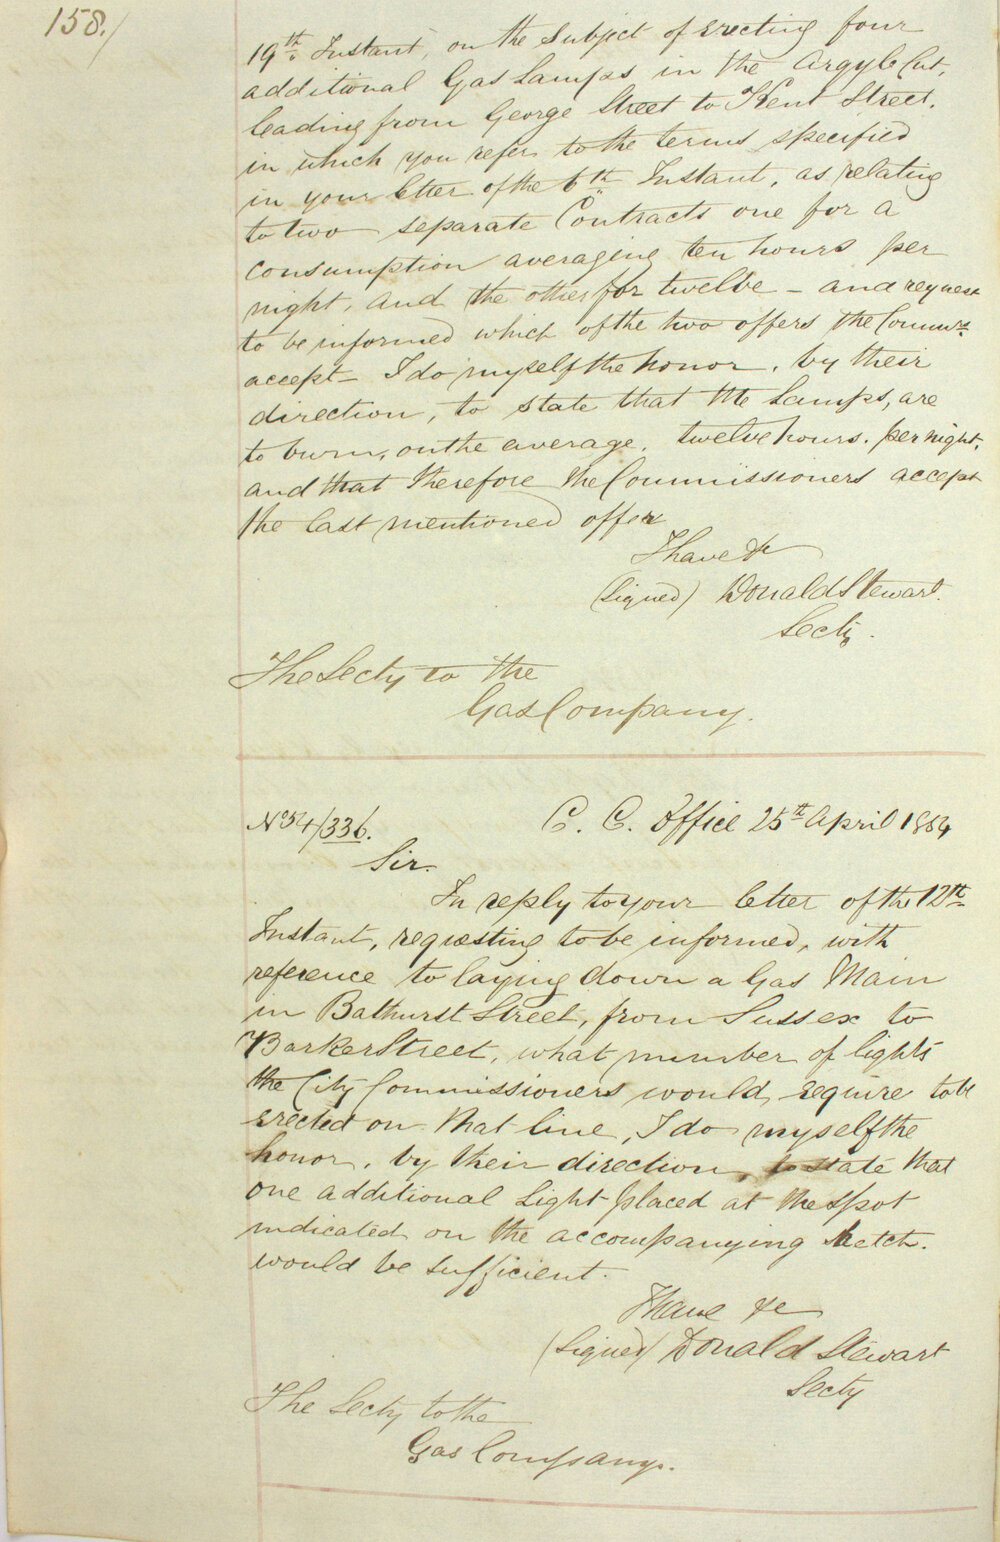 158.
19th Instant, on the subject of erecting four
additional Gas Lamps in the Argyle Cut,
leading from George Street to Kent Street,
in which you refer to the terms specified
in your letter of the 6th Instant, as relating
to two separate Contracts one for a
consumption averaging ten hours per
night, and the other for twelve – and request
to be informed which of the two offers the Commrs.
accept – I do myself the honor, by their
direction, to state that the Lamps, are
to burn, on the average, twelve hours. per night,
and that therefore the Commissioners accept
the last mentioned offer
I have &c
(Signed) Donald Stewart.
Secty.
The Secty to the
Gas Company.
No 54/336.
C. C. Office 25th April 1854
Sir.
In reply to your letter of the 12th
Instant, requesting to be informed, with
reference to laying down a Gas Main
in Bathurst Street, from Sussex to
Barker Street, what number of lights
the City Commissioners would require to be
erected on that line, I do myself the
honor, by their direction, to state that
one additional Light placed at the spot
indicated on the accompanying sketch.
would be sufficient.
I have &c
(Signed) Donald Stewart
Secty
The Secty to the
Gas Company.